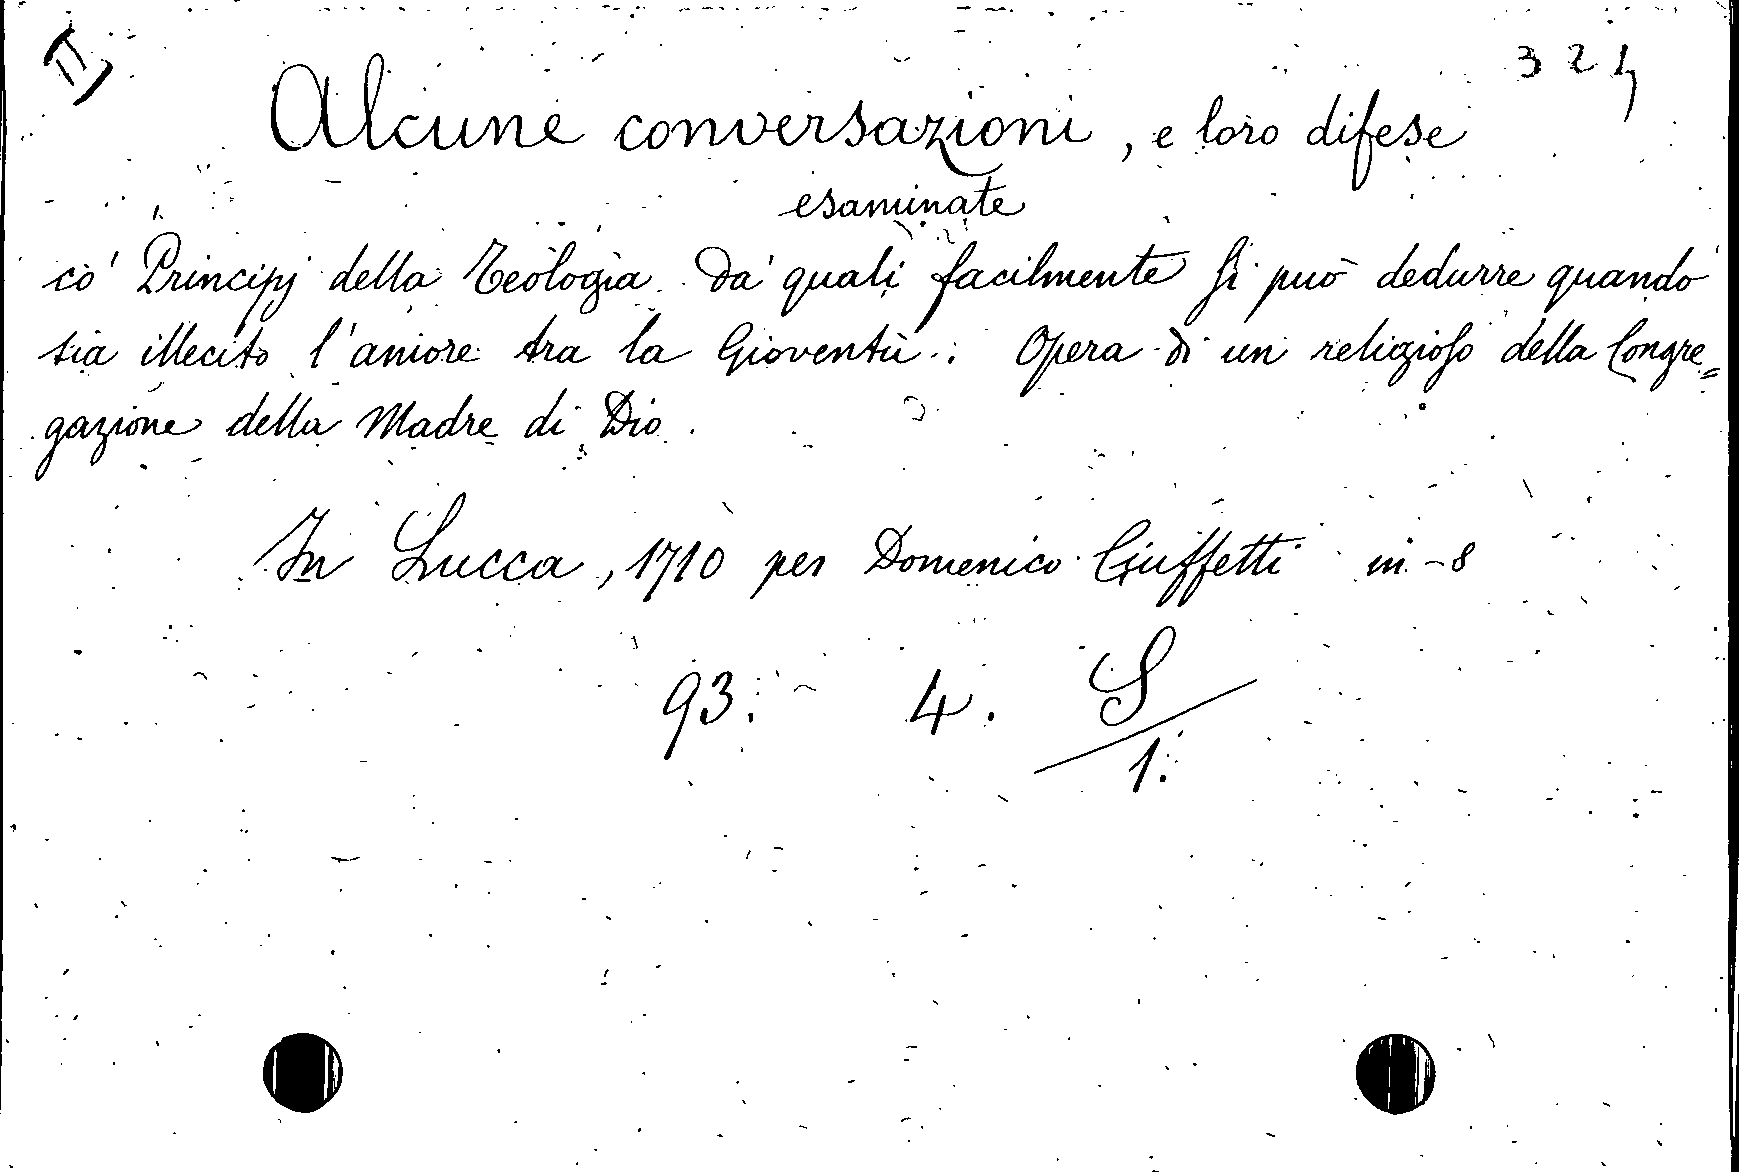 II
324
Alcune conversazioni, e loro difese
esaminate
co' Principj della Teologia da' quali facilmente si può dedurre quando
sia illecito l'amore tra la Gioventù: Opera di un religioso della Congre=
gazione della Madre di Dio.
In Lucca, 1710 per Domenico Ciuffetti in-8
93. 4. S/1.